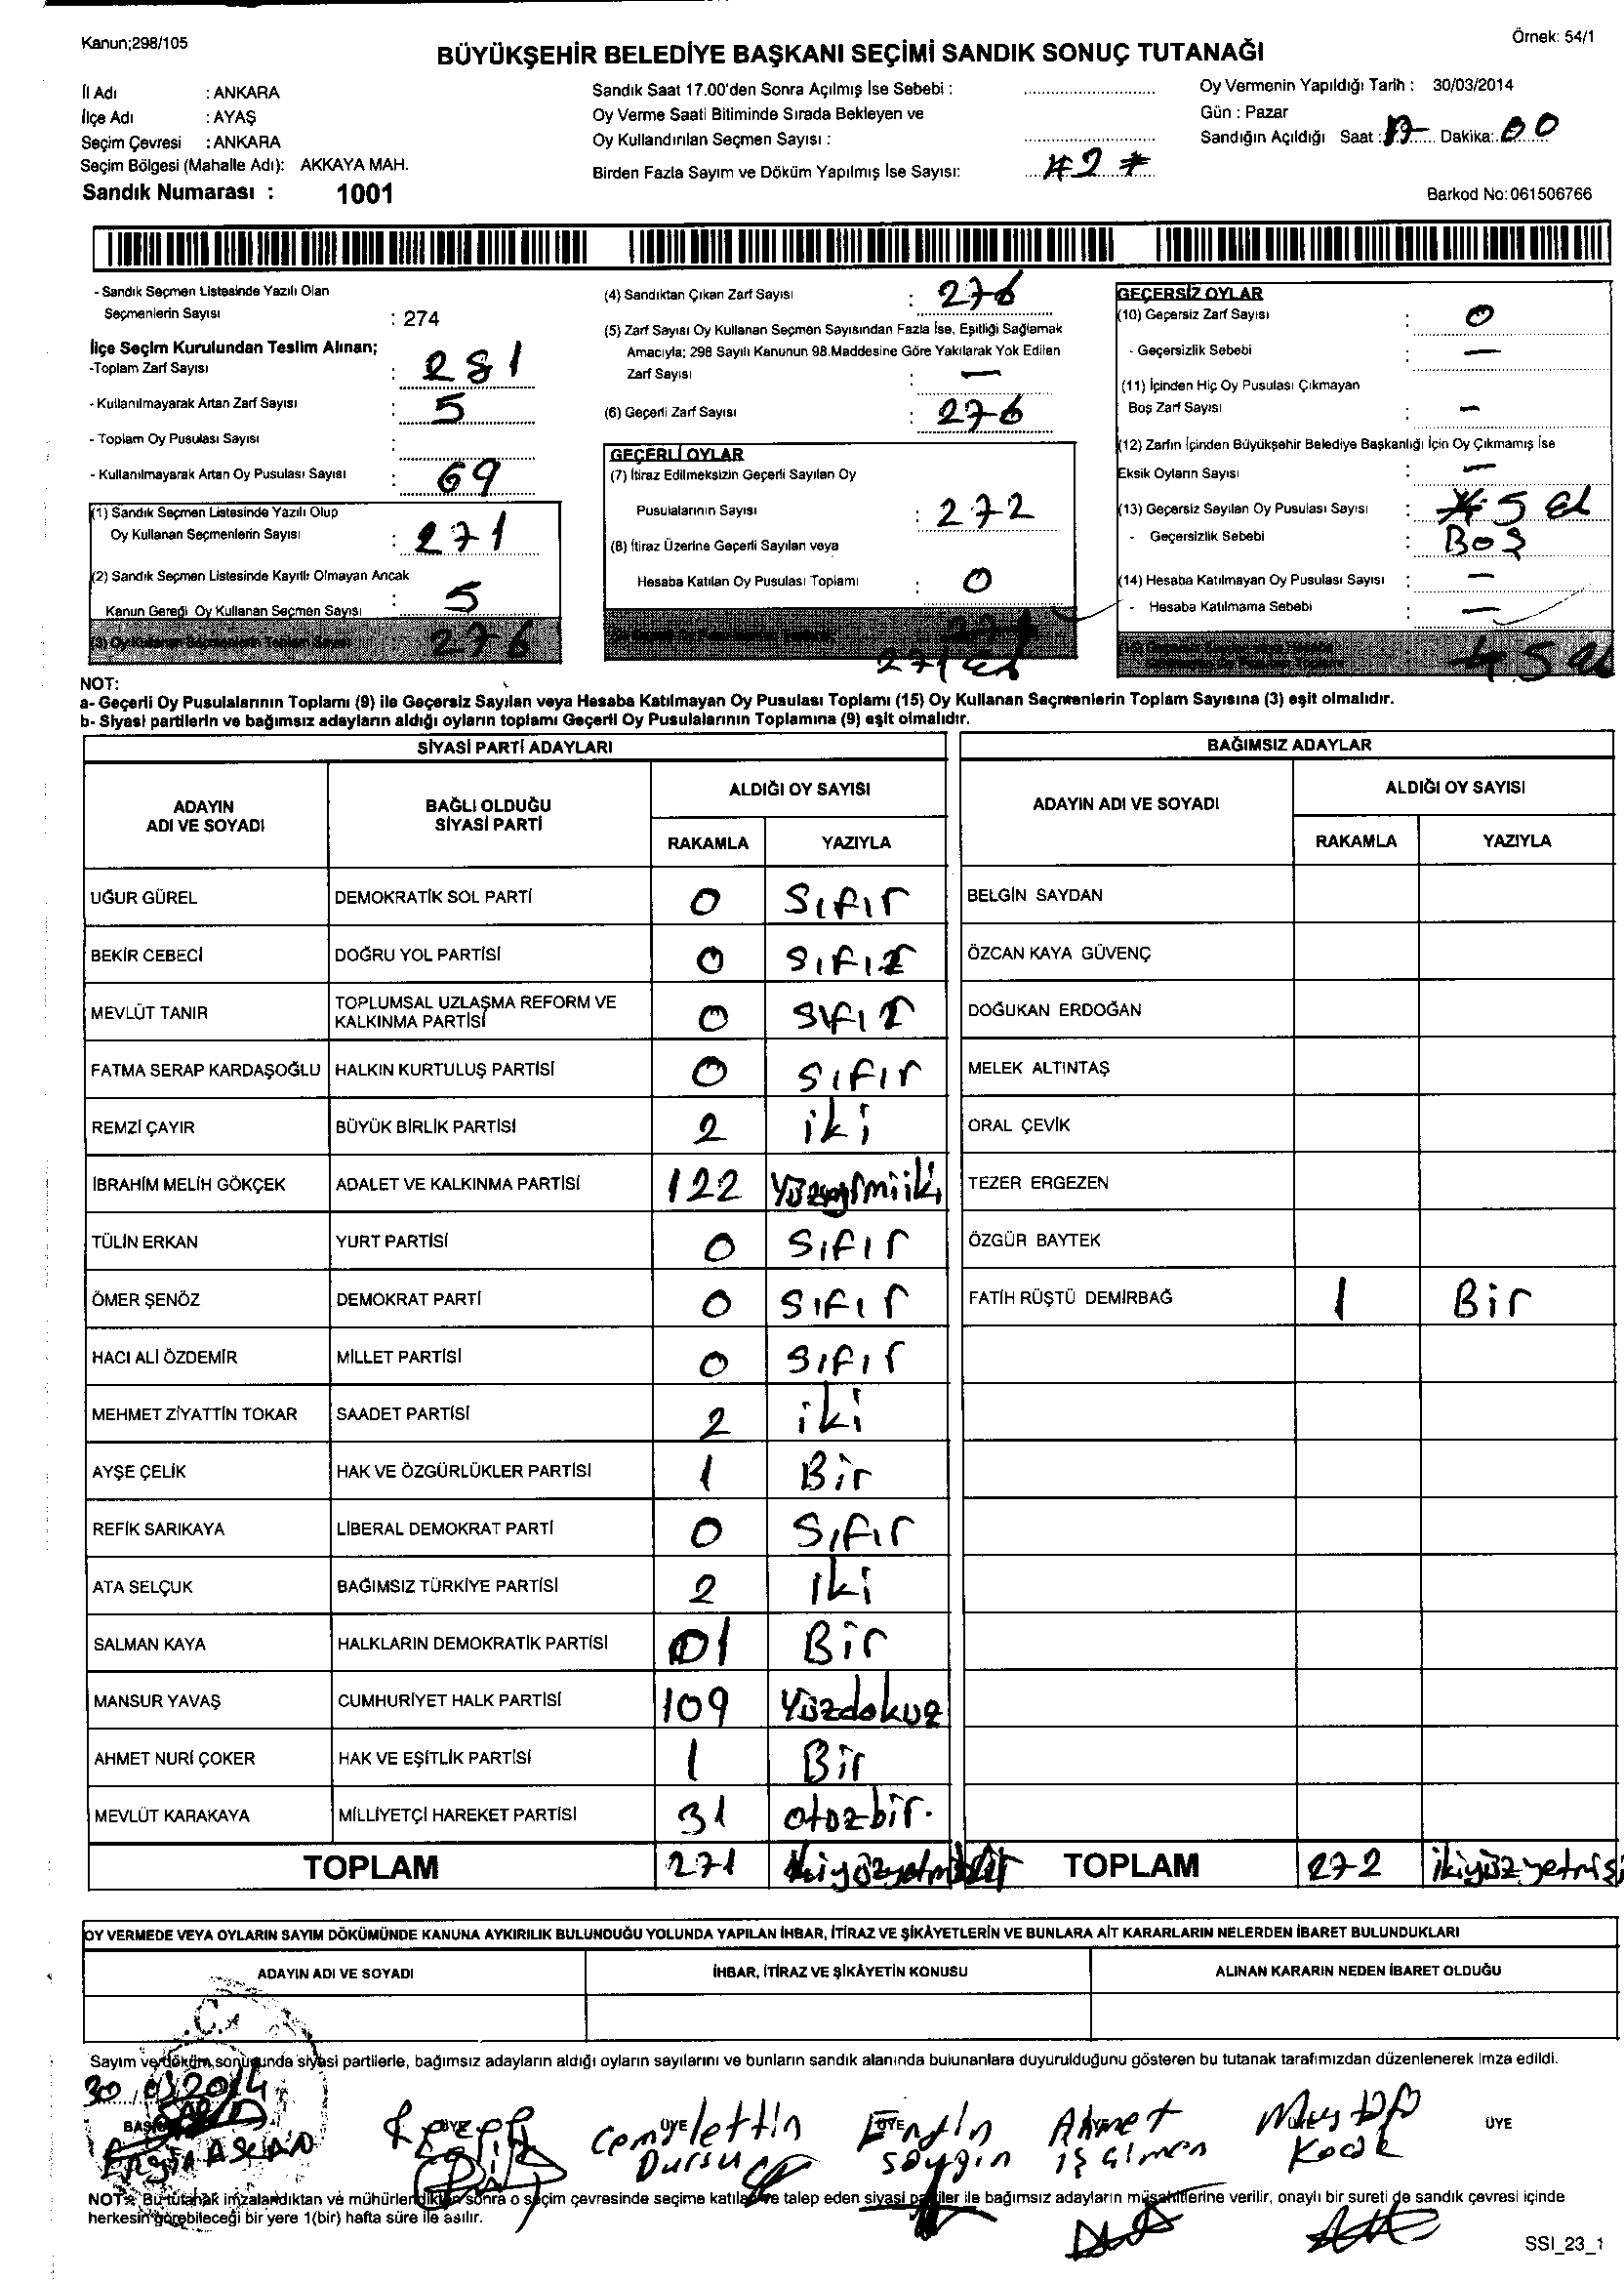 Kanun;298/105
Örnek: 54/1
BÜYÜKŞEHİR BELEDİYE BAŞKANI SEÇİMİ SANDIK SONUÇ TUTANAĞI
İl Adı : ANKARA
İlçe Adı : AYAŞ
Seçim Çevresi : ANKARA
Seçim Bölgesi (Mahalle Adı): AKKAYA MAH.
Sandık Numarası : 1001
Sandık Saat 17.00'den Sonra Açılmış İse Sebebi :
Oy Verme Saati Bitiminde Sırada Bekleyen ve
Oy Kullandırılan Seçmen Sayısı :
Birden Fazla Sayım ve Döküm Yapılmış İse Sayısı: #2#
Oy Vermenin Yapıldığı Tarih : 30/03/2014
Gün : Pazar
Sandığın Açıldığı Saat : 17 Dakika: 00
Barkod No:061506766
- Sandık Seçmen Listesinde Yazılı Olan
Seçmenlerin Sayısı : 274
İlçe Seçim Kurulundan Teslim Alınan;
-Toplam Zarf Sayısı : 281
- Kullanılmayarak Artan Zarf Sayısı : 5
- Toplam Oy Pusulası Sayısı :
- Kullanılmayarak Artan Oy Pusulası Sayısı : 69
(1) Sandık Seçmen Listesinde Yazılı Olup
Oy Kullanan Seçmenlerin Sayısı : 271
(2) Sandık Seçmen Listesinde Kayıtlı Olmayan Ancak
Kanun Gereği Oy Kullanan Seçmen Sayısı : 5
(3) Oy Kullanan Seçmenlerin Toplam Sayısı : 276
(4) Sandıktan Çıkan Zarf Sayısı : 276
(5) Zarf Sayısı Oy Kullanan Seçmen Sayısından Fazla İse, Eşitliği Sağlamak
Amacıyla; 298 Sayılı Kanunun 98.Maddesine Göre Yakılarak Yok Edilen
Zarf Sayısı : —
(6) Geçerli Zarf Sayısı : 276
GEÇERLİ OYLAR
(7) İtiraz Edilmeksizin Geçerli Sayılan Oy
Pusulalarının Sayısı : 272
(8) İtiraz Üzerine Geçerli Sayılan veya
Hesaba Katılan Oy Pusulası Toplamı : 0
271
GEÇERSİZ OYLAR
(10) Geçersiz Zarf Sayısı : 0
- Geçersizlik Sebebi : —
(11) İçinden Hiç Oy Pusulası Çıkmayan
Boş Zarf Sayısı : —
(12) Zarfın İçinden Büyükşehir Belediye Başkanlığı İçin Oy Çıkmamış İse
Eksik Oyların Sayısı : —
(13) Geçersiz Sayılan Oy Pusulası Sayısı : 5
- Geçersizlik Sebebi : BOŞ
(14) Hesaba Katılmayan Oy Pusulası Sayısı : —
- Hesaba Katılmama Sebebi : —
5
NOT:
a- Geçerli Oy Pusulalarının Toplamı (9) ile Geçersiz Sayılan veya Hesaba Katılmayan Oy Pusulası Toplamı (15) Oy Kullanan Seçmenlerin Toplam Sayısına (3) eşit olmalıdır.
b- Siyasi partilerin ve bağımsız adayların aldığı oyların toplamı Geçerli Oy Pusulalarının Toplamına (9) eşit olmalıdır.
SİYASİ PARTİ ADAYLARI
ADAYIN ADI VE SOYADI
BAĞLI OLDUĞU SİYASİ PARTİ
ALDIĞI OY SAYISI
RAKAMLA YAZIYLA
UĞUR GÜREL DEMOKRATİK SOL PARTİ 0 Sıfır
BEKİR CEBECİ DOĞRU YOL PARTİSİ 0 Sıfır
MEVLÜT TANIR TOPLUMSAL UZLAŞMA REFORM VE KALKINMA PARTİSİ 0 Sıfır
FATMA SERAP KARDAŞOĞLU HALKIN KURTULUŞ PARTİSİ 0 Sıfır
REMZİ ÇAYIR BÜYÜK BİRLİK PARTİSİ 2 iki
İBRAHİM MELİH GÖKÇEK ADALET VE KALKINMA PARTİSİ 122 Yüzyirmiiki
TÜLİN ERKAN YURT PARTİSİ 0 Sıfır
ÖMER ŞENÖZ DEMOKRAT PARTİ 0 Sıfır
HACI ALİ ÖZDEMİR MİLLET PARTİSİ 0 Sıfır
MEHMET ZİYATTİN TOKAR SAADET PARTİSİ 2 iki
AYŞE ÇELİK HAK VE ÖZGÜRLÜKLER PARTİSİ 1 Bir
REFİK SARIKAYA LİBERAL DEMOKRAT PARTİ 0 Sıfır
ATA SELÇUK BAĞIMSIZ TÜRKİYE PARTİSİ 2 iki
SALMAN KAYA HALKLARIN DEMOKRATİK PARTİSİ 01 Bir
MANSUR YAVAŞ CUMHURİYET HALK PARTİSİ 109 Yüzdokuz
AHMET NURİ ÇOKER HAK VE EŞİTLİK PARTİSİ 1 Bir
MEVLÜT KARAKAYA MİLLİYETÇİ HAREKET PARTİSİ 31 otozbir.
TOPLAM 271 ikiyüzyetmişbir
BAĞIMSIZ ADAYLAR
ADAYIN ADI VE SOYADI
ALDIĞI OY SAYISI
RAKAMLA YAZIYLA
BELGİN SAYDAN
ÖZCAN KAYA GÜVENÇ
DOĞUKAN ERDOĞAN
MELEK ALTINTAŞ
ORAL ÇEVİK
TEZER ERGEZEN
ÖZGÜR BAYTEK
FATİH RÜŞTÜ DEMİRBAĞ 1 Bir
TOPLAM 272 ikiyüzyetmiş
OY VERMEDE VEYA OYLARIN SAYIM DÖKÜMÜNDE KANUNA AYKIRILIK BULUNDUĞU YOLUNDA YAPILAN İHBAR, İTİRAZ VE ŞİKÂYETLERİN VE BUNLARA AİT KARARLARIN NELERDEN İBARET BULUNDUKLARI
ADAYIN ADI VE SOYADI
İHBAR, İTİRAZ VE ŞİKÂYETİN KONUSU
ALINAN KARARIN NEDEN İBARET OLDUĞU
Sayım ve döküm sonucunda siyasi partilerle, bağımsız adayların aldığı oyların sayılarını ve bunların sandık alanında bulunanlara duyurulduğunu gösteren bu tutanak tarafımızdan düzenlenerek imza edildi.
30.03.2014
ÜYE ÜYE ÜYE ÜYE
Cemalettin Dursu
Engin Saygın
Ahmet işgimen
Mustafa Kocak
NOT: Bu tutanak imzalandıktan ve mühürlendikten sonra o seçim çevresinde seçime katılan ve talep eden siyasi partiler ile bağımsız adayların müşahitlerine verilir, onaylı bir sureti de sandık çevresi içinde
herkesin görebileceği bir yere 1(bir) hafta süre ile asılır.
SSI_23_1